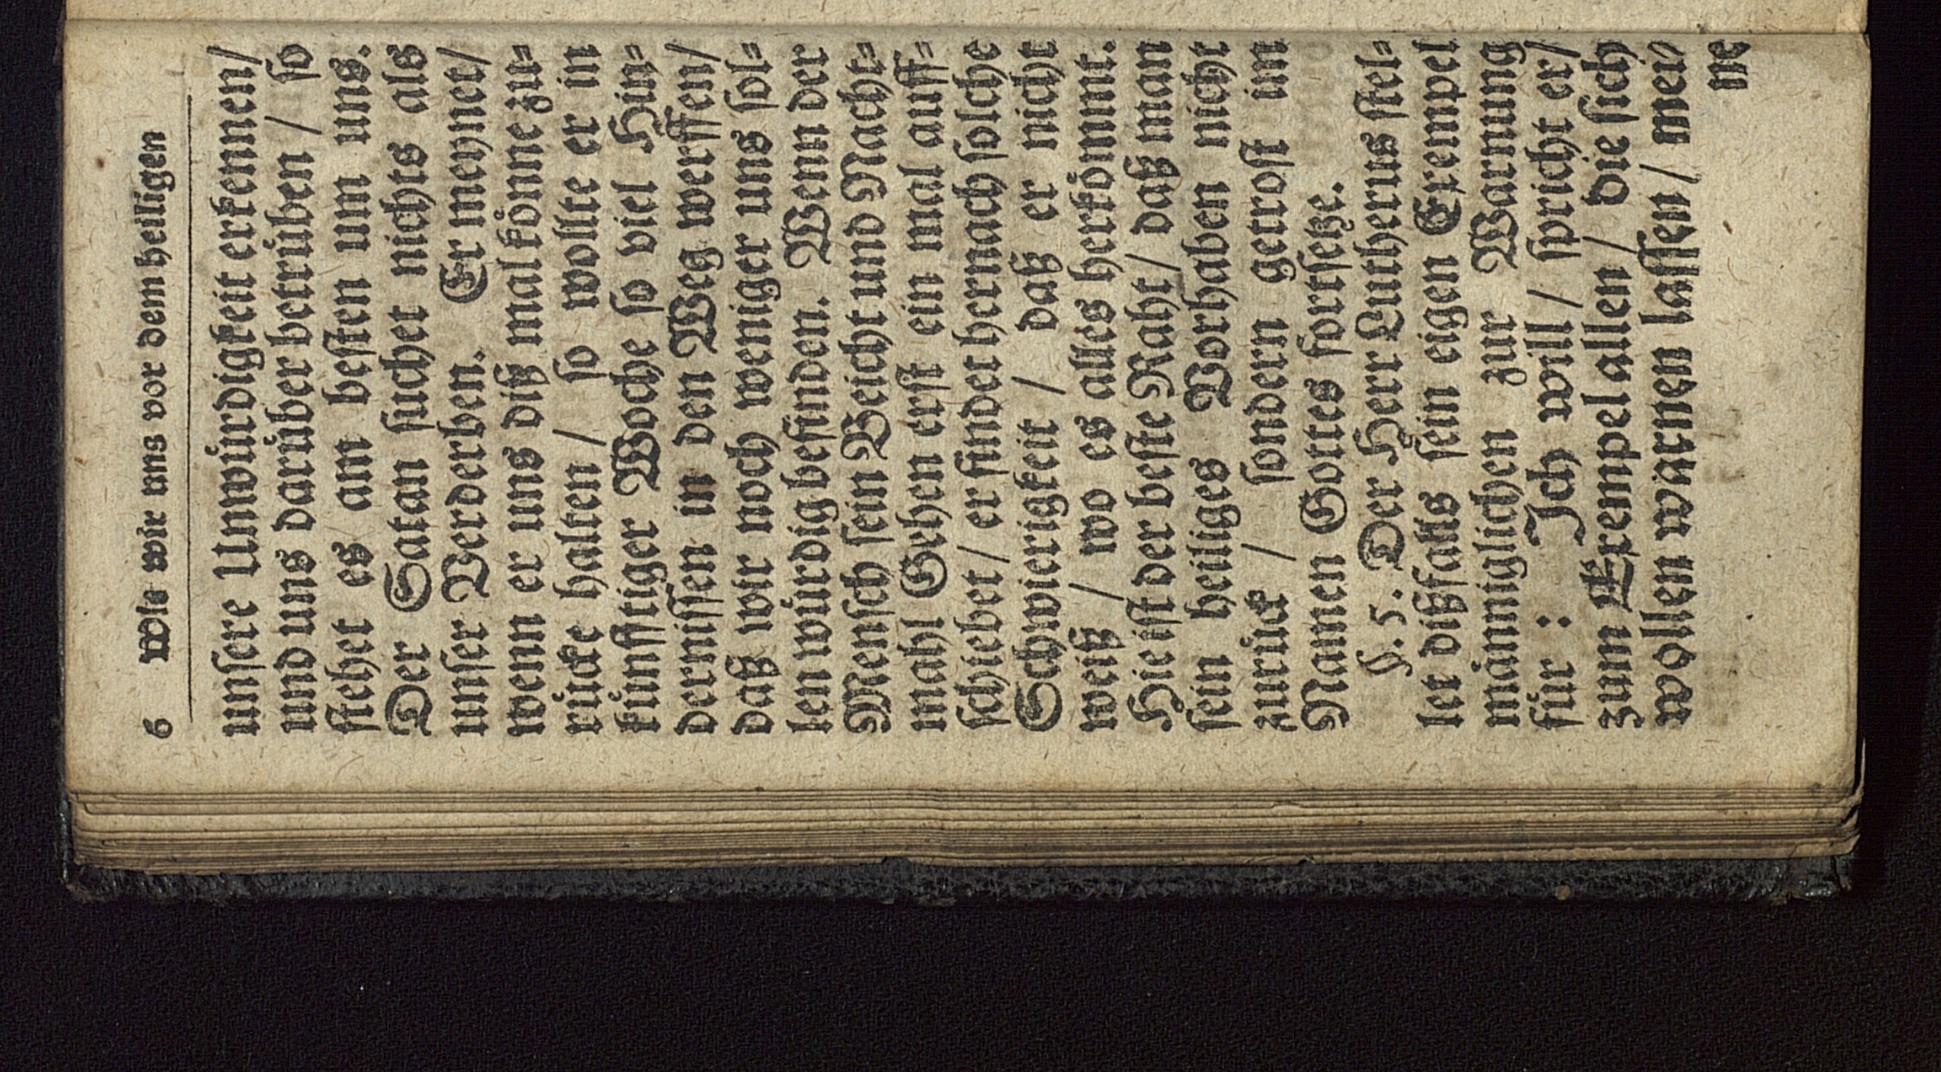 6 Wie wir uns vor dem heiligen
unsere Unwürdigkeit erkennen/
und uns darüber betrüben / so
stehet es am besten um uns.
Der Satan suchet nichts als
unser Verderben. Er meynet/
wenn er uns diß mal könne zu-
rücke halten / so wollte er in
künfftiger Woche so viel Hin-
dernissen in den Weg werffen/
daß wir noch weniger uns sol-
len würdig befinden. Wenn der
Mensch sein Beicht und Nacht-
mahl Gehen erst ein mal auff-
schiebet / er findet hernach solche
Schwierigkeit / daß er nicht
weiß / wo es alles herkömmt.
Hie ist der beste Raht / daß man
sein heiliges Vorhaben nicht
zurück / sondern getrost im
Namen Gottes fortsetze.
§. 5. Der Herr Lutherus stel-
let dißfalls sein eigen Exempel
männiglichen zur Warnung
für : Ich will / spricht er/
zum Exempel allen / die sich
wollen warnen lassen / mei-
ne